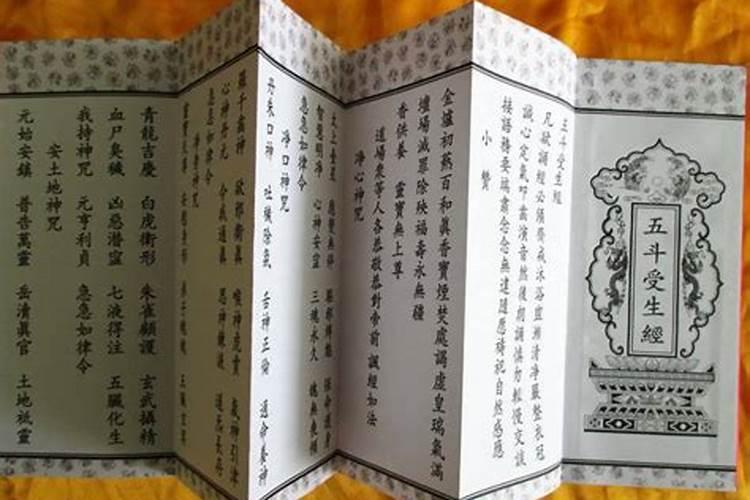 五斗受生經
五斗受生經
凡欲誦經必須齋戒沐浴盥漱清淨嚴整衣冠
誠心定氣叩齒演音然後朗誦慎勿輕慢交談
接語務要端肅念念無違隨應禱祀自然感應
小讚
金爐初爇百和真香寶煙焚處謁虛皇瑞氣滿
壇場滅罪除殃福壽永無疆
香供養 靈寶無上尊
道場眾等人各恭敬恭對帝前 誦經如法
淨心神咒
太上臺星 應變無停 驅邪縛魅 保命護身
智慧明淨 心神安寧 三魂永久 魄無喪傾
急急如律令
淨口神咒
丹朱口神 吐穢除氛 舌神正倫 通命養神
羅千齒神 卻邪衛真 喉神虎賁 炁神引津
心神丹元 令我通真 思神鍊液 道炁長存
急急如律令
淨身神咒
靈寶天尊 安慰身形 弟子魂魄 五臟玄冥
青龍吉慶 白虎衛形 朱雀顧護 玄武攝精
血尸臭穢 凶惡潛寧 七液得注 五臟化生
我持神咒 元亨利貞 急急如律令
安土地神咒
元始安鎮 普告萬靈 岳瀆真官 土地祗靈